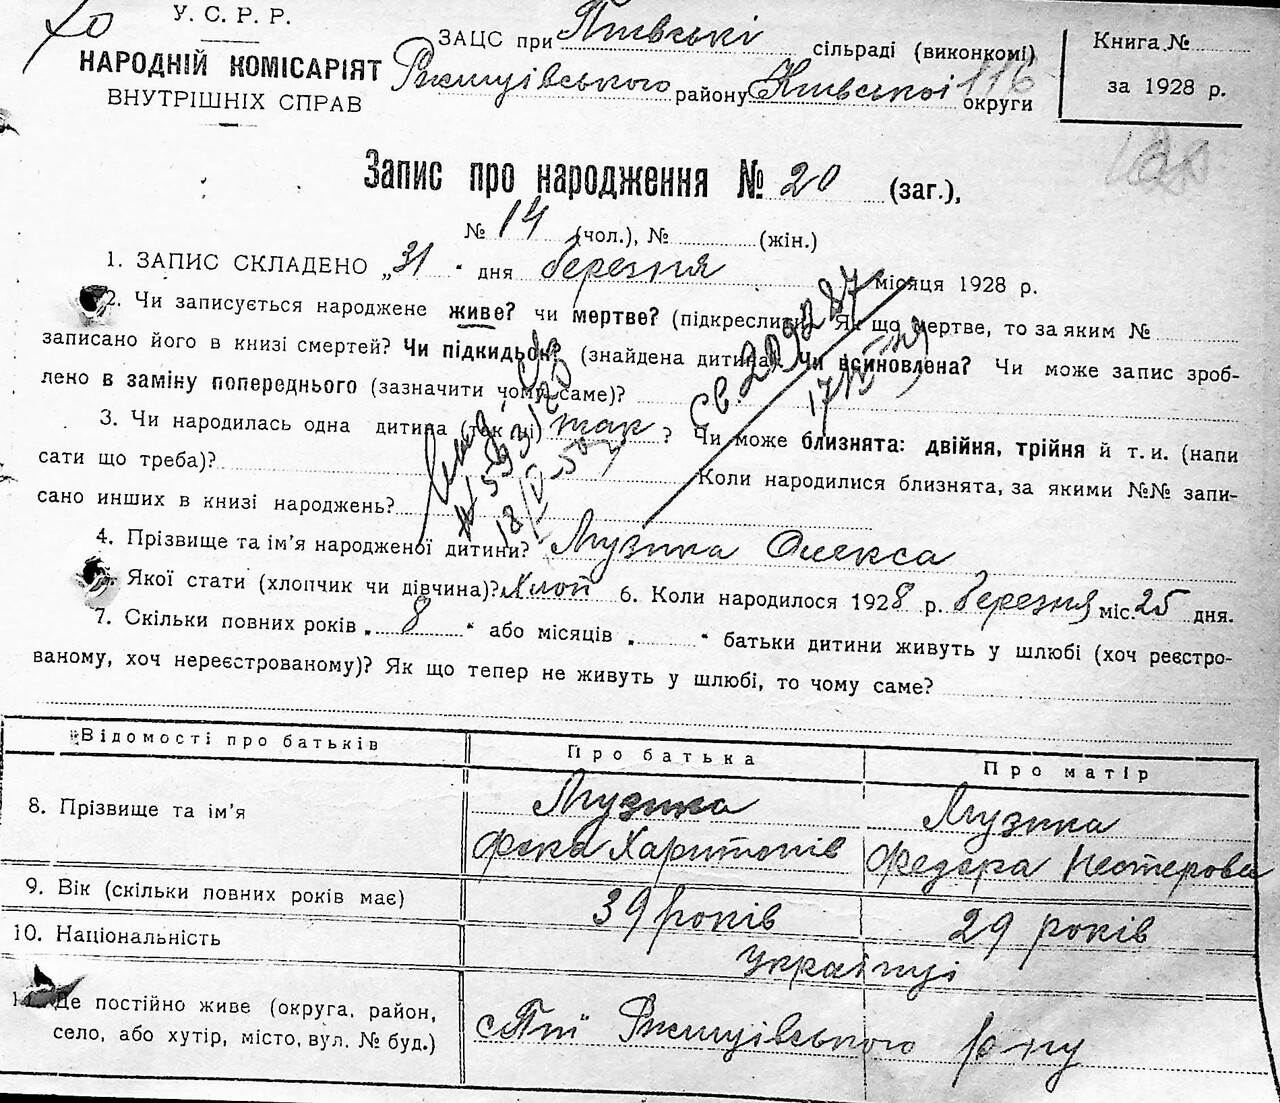 У. С. Р. Р.
НАРОДНІЙ КОМІСАРІЯТ
ВНУТРІШНІХ СПРАВ
ЗАЦС при Пиївські сільраді (виконкомі)
Ржищівського району Київської округи
116
Книга №
за 1928 р.
Запис про народження № 20 (заг.),
№ 14 (чол.), № (жін.)
1. ЗАПИС СКЛАДЕНО „31" дня березня місяця 1928 р.
2. Чи записується народжене живе? чи мертве? (підкреслити) Як що мертве, то за яким №
записано його в книзі смертей? Чи підкидьок? (знайдена дитина) Чи всиновлена? Чи може запис зроб-
лено в заміну попереднього (зазначити чому саме)?
Св. 229287
3. Чи народилась одна дитина (так ні) так ? Чи може близнята: двійня, трійня й т. и. (напи
сати що треба)? Коли народилися близнята, за якими №№ запи-
сано инших в книзі народжень?
4. Прізвище та ім'я народженої дитини? Музика Олекса
Якої стати (хлопчик чи дівчина)? Хлоп 6. Коли народилося 1928 р. березня міс. 25 дня.
7. Скільки повних років „ 8 " або місяців „ " батьки дитини живуть у шлюбі (хоч реєстро-
ваному, хоч нереєстрованому)? Як що тепер не живуть у шлюбі, то чому саме?
Відомості про батьків Про батька Про матір
8. Прізвище та ім'я Музика Музика
Фока Харитонів Федора Нестерова
9. Вік (скільки повних років має) 39 років 29 років
10. Національність Українці
11. Де постійно живе (округа, район,
село, або хутір, місто, вул. № буд.) с Пиї Ржищівського р-ну